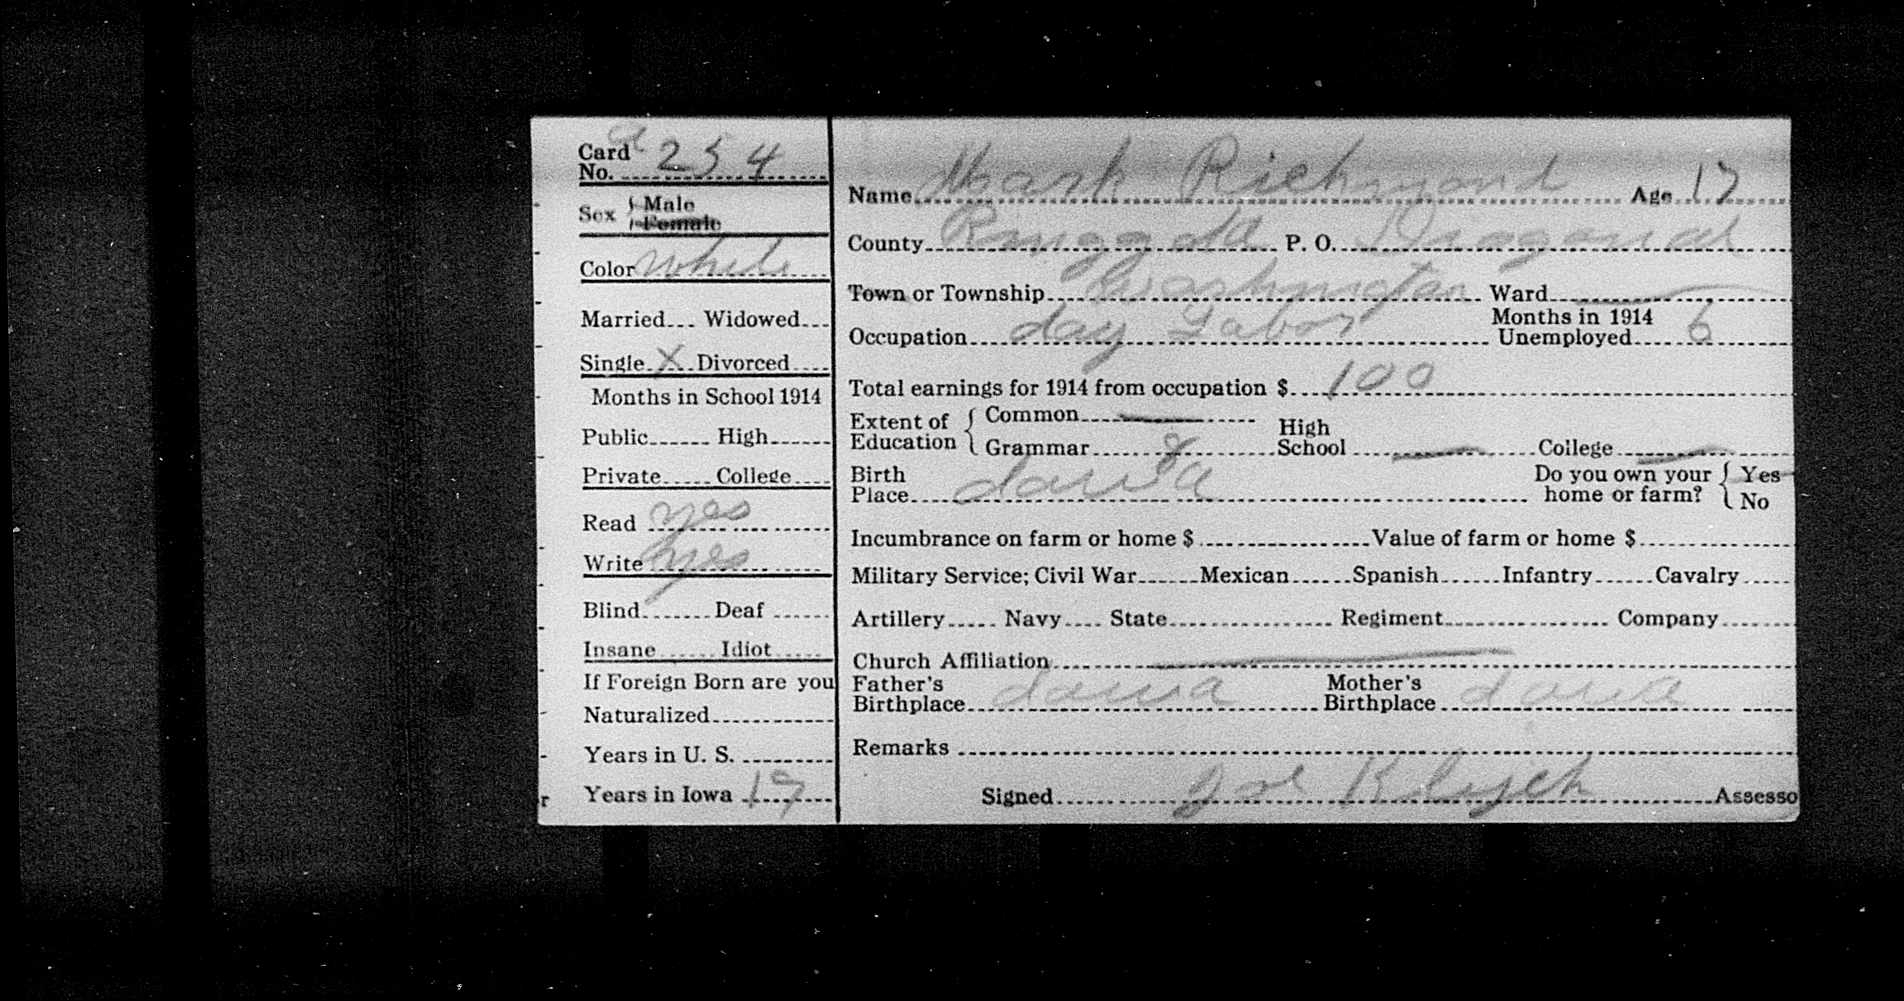 Card No. A 254
Sex { Male
Female
Color White
Married Widowed
Single X Divorced
Months in School 1914
Public High
Private College
Read yes
Write yes
Blind Deaf
Insane Idiot
If Foreign Born are you
Naturalized
Years in U. S.
r Years in Iowa 17
Name Mark Richmond Age 17
County Ringgold P. O. Diagonal
Town or Township Washington Ward
Occupation day Labor Months in 1914 Unemployed 6
Total earnings for 1914 from occupation $ 100
Extent of Education { Common
Grammar 8 High School College
Birth Place Iowa Do you own your home or farm? { Yes
No
Incumbrance on farm or home $ Value of farm or home $
Military Service; Civil War Mexican Spanish Infantry Cavalry
Artillery Navy State Regiment Company
Church Affiliation
Father's Birthplace Iowa Mother's Birthplace Iowa
Remarks
Signed Joe Assesso